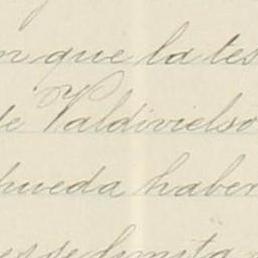 n que la tes
de Valdivielso
pueda haber